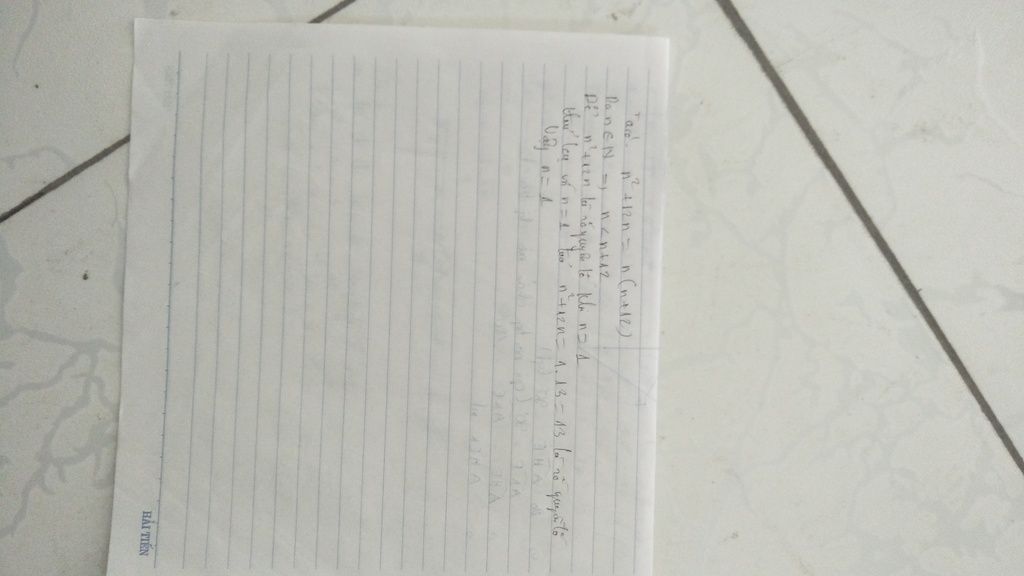 Ta có: n² + 12n = n(n+12)
Do n ∈ N => n < n+12
Để n² + 12n là số nguyên tố khi n = 1
thử lại với n = 1 n² + 12n = 1.13 = 13 là số nguyên tố
Vậy n = 1
HẢI TIẾN